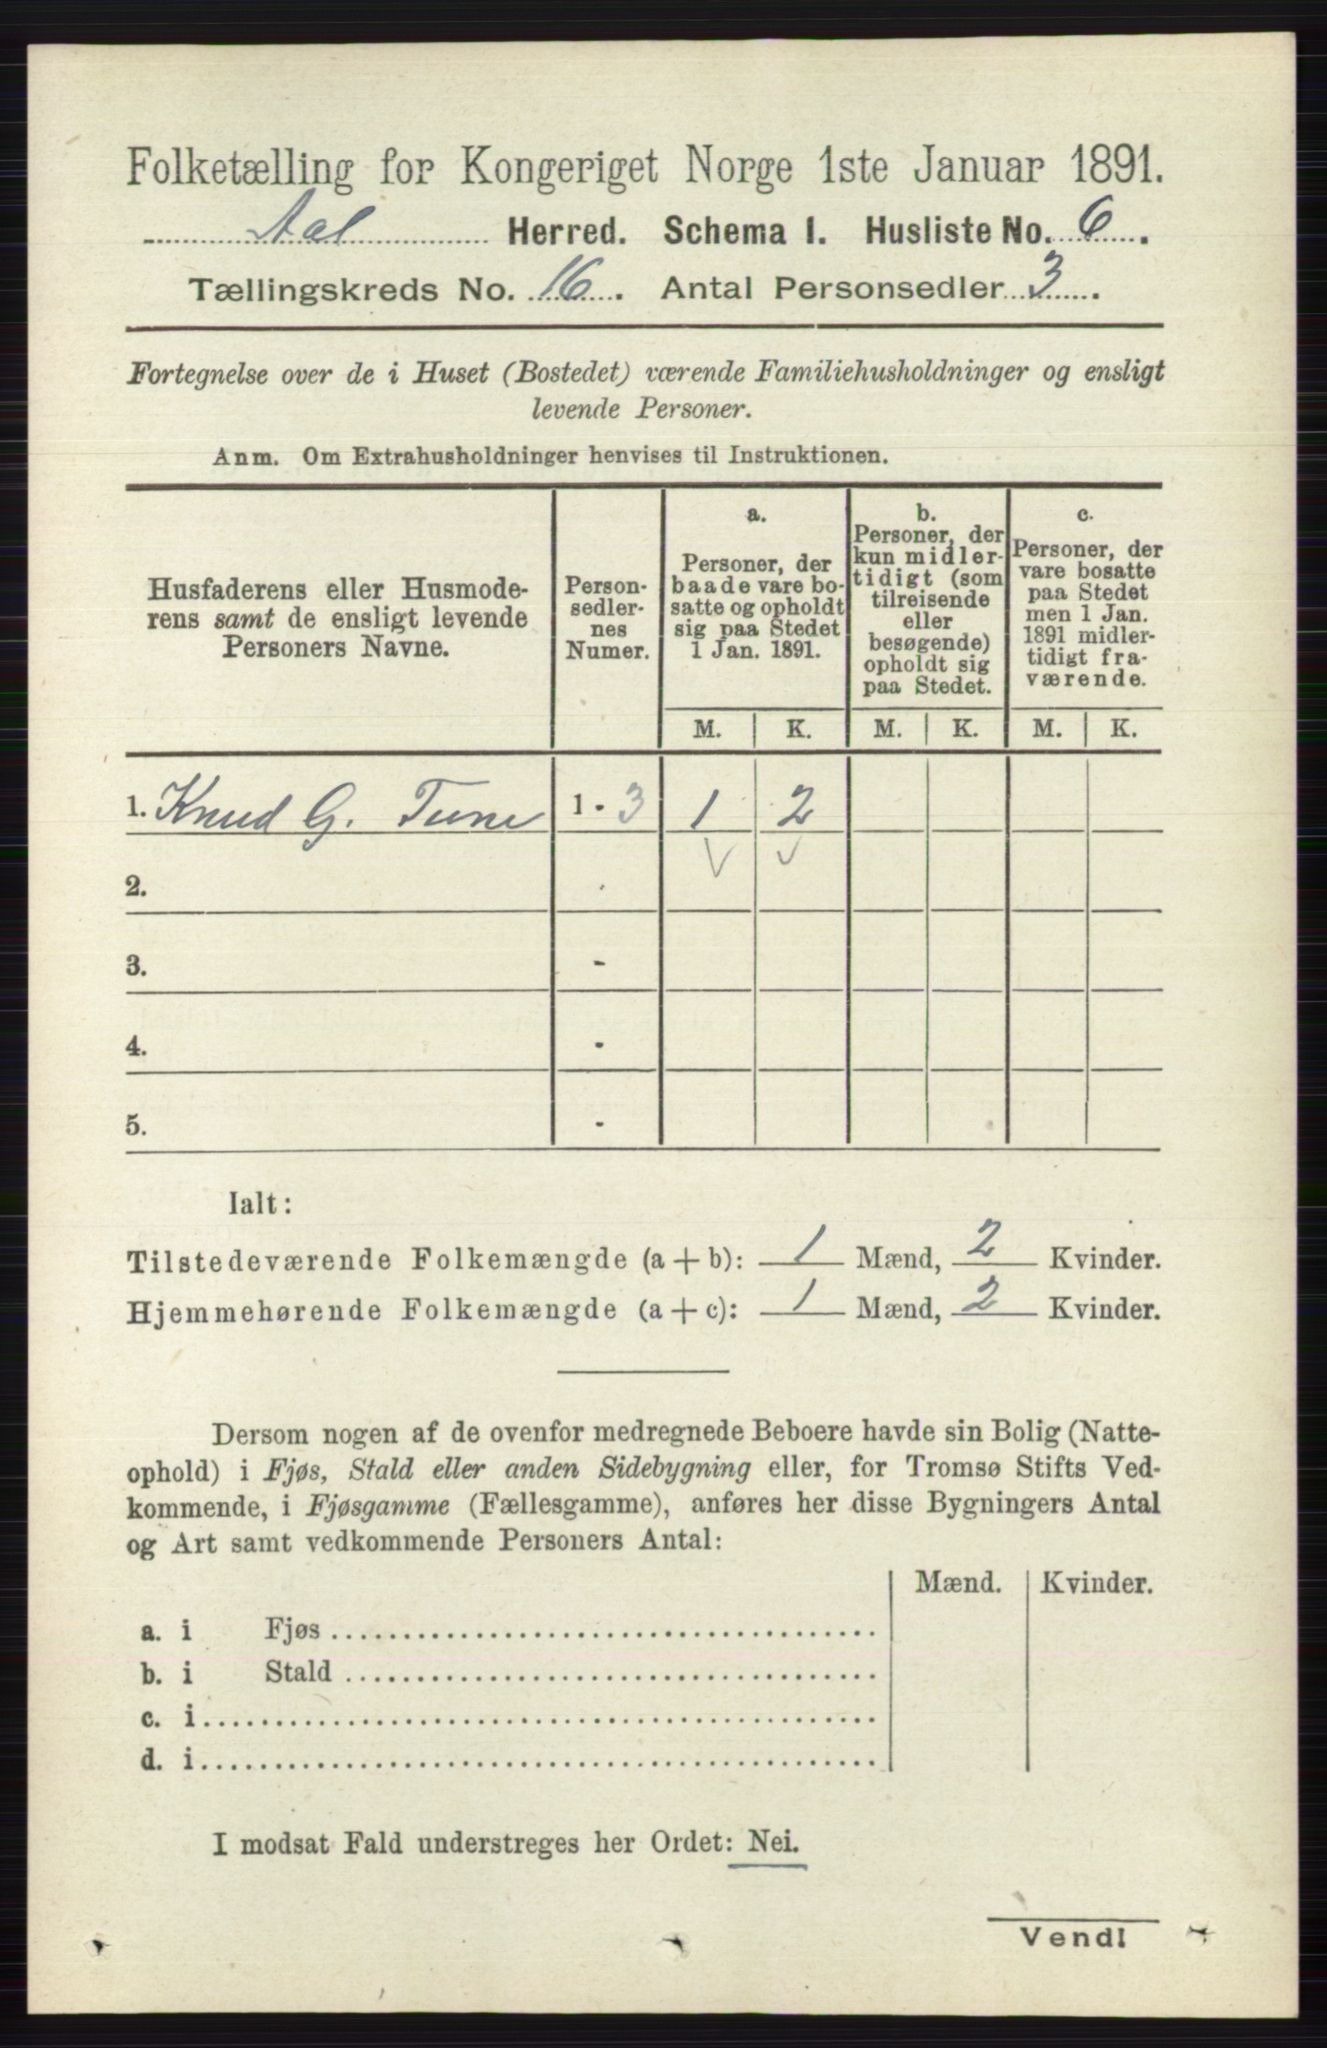 Folketælling for Kongeriget Norge 1ste Januar 1891.
Aal Herred. Schema I. Husliste No. 6.
Tællingskreds No. 16. Antal Personsedler 3.
Fortegnelse over de i Huset (Bostedet) værende Familiehusholdninger og ensligt
levende Personer.
Anm. Om Extrahusholdninger henvises til Instruktionen.
Husfaderens eller Husmode-
rens samt de ensligt levende
Personers Navne.
Person-
sedler-
nes
Numer.
a.
Personer, der
baade vare bo-
satte og opholdt
sig paa Stedet
1 Jan. 1891.
b.
Personer, der
kun midler-
tidigt (som
tilreisende
eller
besøgende)
opholdt sig
paa Stedet.
c.
Personer, der
vare bosatte
paa Stedet
men 1 Jan.
1891 midler-
tidigt fra-
værende.
M. K. M. K. M. K.
1. Knud G. Tune 1 - 3 1 2
2.
3. -
4. -
5. -
Ialt:
Tilstedeværende Folkemængde (a + b): 1 Mænd, 2 Kvinder.
Hjemmehørende Folkemængde (a + c): 1 Mænd, 2 Kvinder.
Dersom nogen af de ovenfor medregnede Beboere havde sin Bolig (Natte-
ophold) i Fjøs, Stald eller anden Sidebygning eller, for Tromsø Stifts Ved-
kommende, i Fjøsgamme (Fællesgamme), anføres her disse Bygningers Antal
og Art samt vedkommende Personers Antal:
Mænd. Kvinder.
a. i Fjøs
b. i Stald
c. i
d. i
I modsat Fald understreges her Ordet: Nei.
Vend!